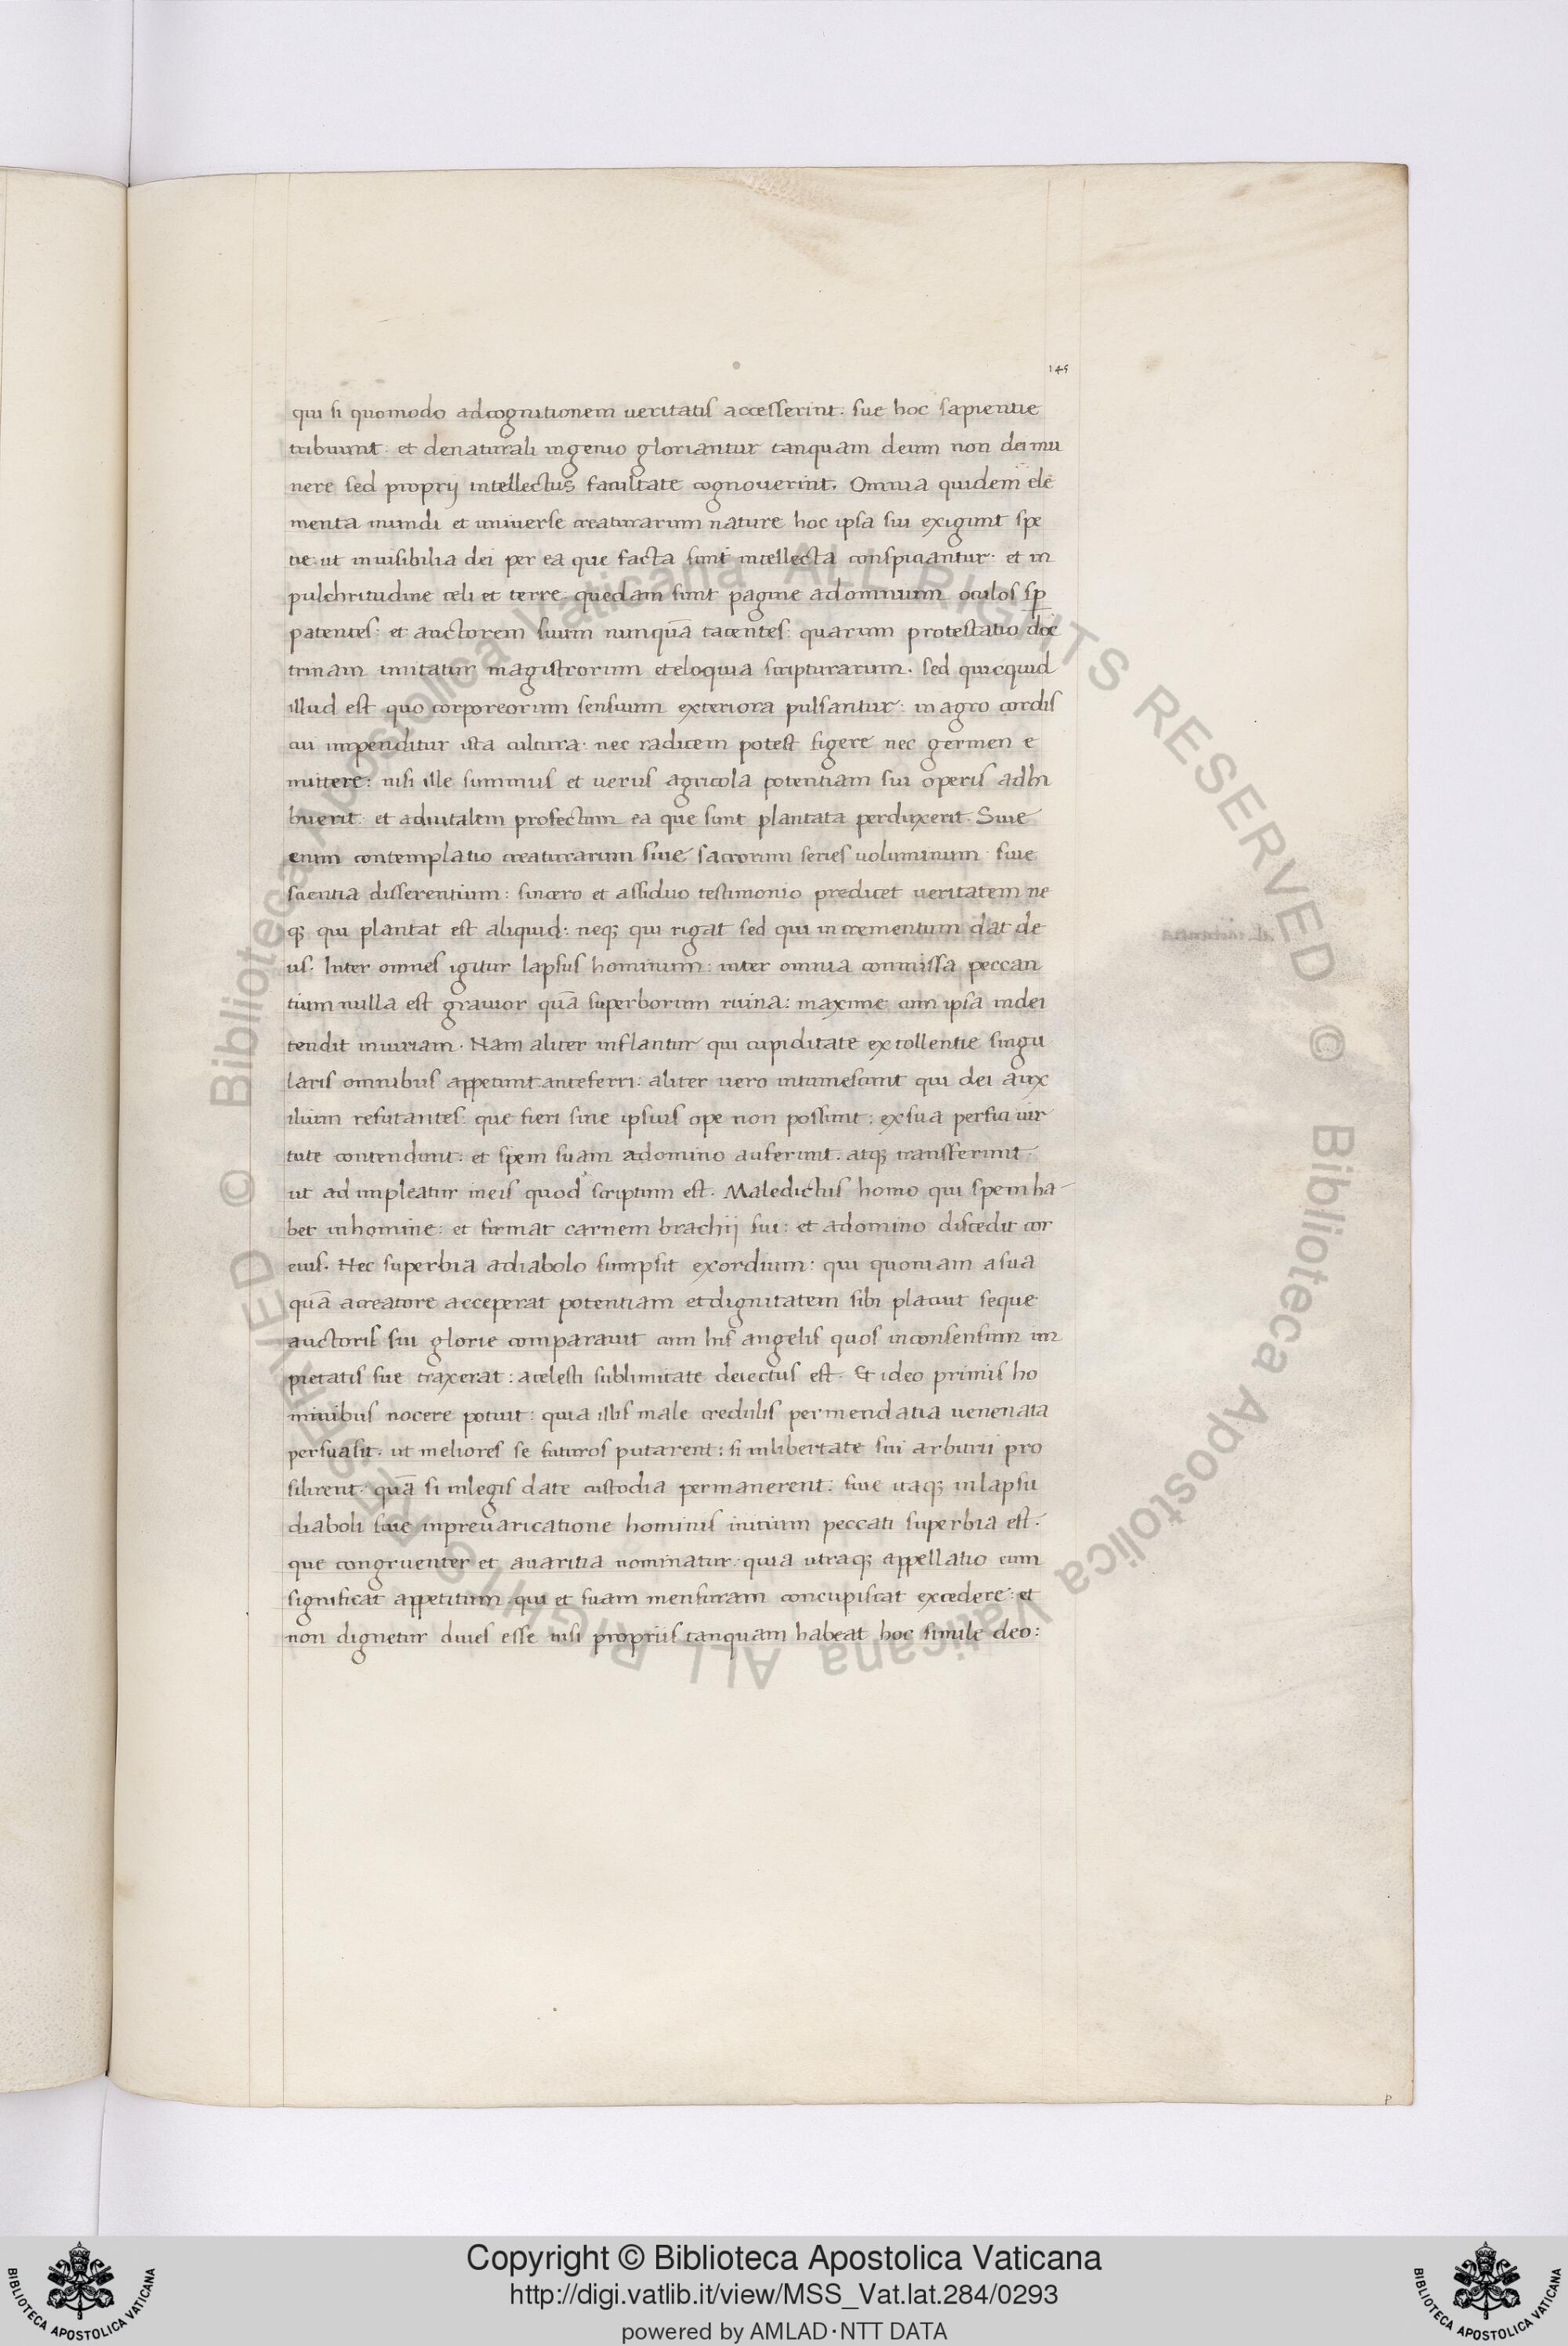 145
qui si quomodo adcognitionem ueritatis accesserint. sue hoc sapientie
tribuunt: et denaturali ingenio gloriantur tanquam deum non dei mu
nere sed proprij intellectus facultate cognouerint. Omnia quidem ele
menta mundi et uniuerse creaturarum nature hoc ipsa sui exigunt spe
tie: ut inuisibilia dei per ea que facta sunt intellecta conspiciantur: et in
pulchritudine celi et terre quedam sunt pagine adomnium oculos sp̲
patentes: et auctorem suum nunquā tacentes: quarum protestatio doc
trinam imitatur magistrorum eteloquia scripturarum. sed quicquid
illud est quo corporeorum sensuum exteriora pulsantur: inagro cordis
cui impenditur ista cultura: nec radicem potest figere nec germen e
mittere: nisi ille summus et uerus agricola potentiam sui operis adhi
buerit: et aduitalem profectum ea que sunt plantata perduxerit. Siue
enim contemplatio creaturarum siue sacrorum series uoluminum siue
scientia disserentium: sincero et assiduo testimonio predicet ueritatem ne
q; qui plantat est aliquid: neq; qui rigat sed qui incrementum dat de
us. Inter omnes igitur lapsus hominum: inter omnia commissa peccan
tium nulla est grauior quā superborum ruina: maxime cum ipsa indei
tendit iniuriam. Nam aliter inflantur qui cupiditate extollentie singu
laris omnibus appetunt anteferri: aliter uero intumescunt qui dei aux
ilium refutantes: que fieri sine ipsius ope non possunt: exsua perfici uir
tute contendunt: et spem suam adomino auferunt. atq; transferunt:
ut adimpleatur ineis quod scriptum est. Maledictus homo qui spem ha
bet inhomine: et firmat carnem brachij sui: et adomino discedit cor
eius. Hec superbia adiabolo sumpsit exordium: qui quoniam asua
quā acreatore acceperat potentiam etdignitatem sibi placuit seque
auctoris sui glorie comparauit cum his angelis quos inconsensum im
pietatis sue traxerat: acelesti sublimitate deiectus est. Et ideo primis ho
minibus nocere potuit: quia illis male credulis permendatia uenenata
persuasit. ut meliores se futuros putarent: si inlibertate sui arbitrii pro
silirent: quā si inlegis date custodia permanerent. siue itaq; inlapsu
diaboli siue inpreuaricatione hominis initium peccati superbia est.
que congruenter et auaritia nominatur: quia utraq; appellatio eum
significat appetitum: qui et suam mensuram concupiscat excedere: et
non dignetur diues esse nisi proprius tanquam habeat hoc simile deo:
P
Copyright © Biblioteca Apostolica Vaticana
http://digi.vatlib.it/view/MSS_Vat.lat.284/0293
powered by AMLAD·NTT DATA
BIBLIOTECA APOSTOLICA VATICANA
BIBLIOTECA APOSTOLICA VATICANA
© Biblioteca Apostolica Vaticana ALL RIGHTS RESERVED © Biblioteca Apostolica Vaticana ALL RIGHTS RESERVED